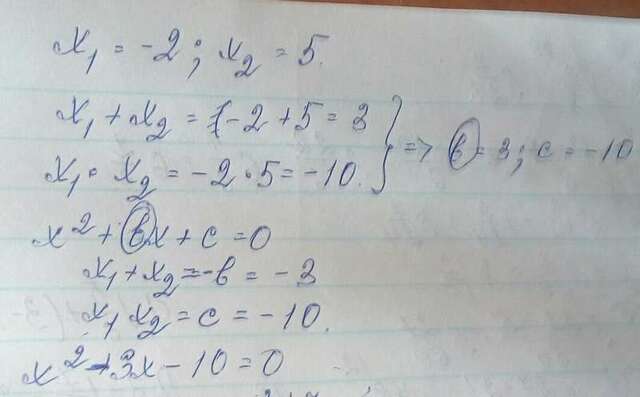 x₁ = -2; x₂ = 5.
x₁ + x₂ = -2 + 5 = 3
x₁ · x₂ = -2 · 5 = -10. } => в = 3; c = -10
x² + вx + c = 0
x₁ + x₂ = -в = -3
x₁ x₂ = c = -10.
x² - 3x - 10 = 0